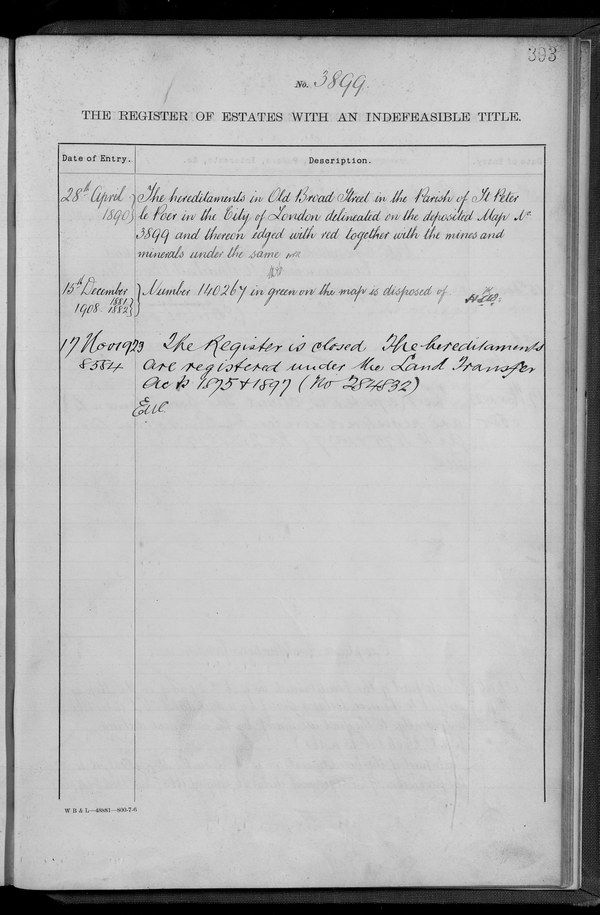 393
No. 3899.
THE REGISTER OF ESTATES WITH AN INDEFEASIBLE TITLE.
Date of Entry. Description.
28th April The hereditaments in Old Broad Street in the Parish of St Peter
1890 le Poer in the City of London delineated on the deposited Map No
3899 and thereon edged with red together with the mines and
minerals under the same
15th December Number 140267 in green on the map is disposed of
1908. 1881/1882
17 Nov 1923 The Register is closed The hereditaments
8554 are registered under the Land Transfer
Acts 1875 & 1897 (No 284832)
W B & L—48881—800-7-6